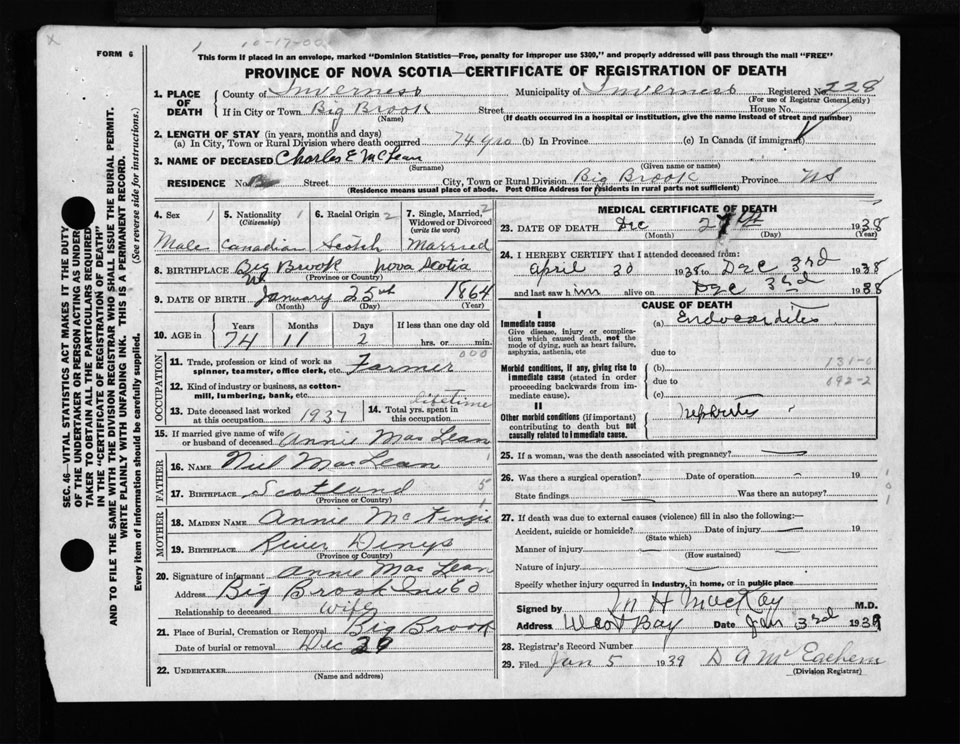 x
FORM 6
1 10-17-00
This form if placed in an envelope, marked "Dominion Statistics—Free, penalty for improper use $300," and properly addressed will pass through the mail "FREE"
PROVINCE OF NOVA SCOTIA—CERTIFICATE OF REGISTRATION OF DEATH
1. PLACE OF DEATH County of Inverness Municipality of Inverness Registered No. 228
(For use of Registrar General only)
If in City or Town Big Brook Street House No.
(Name) (If death occurred in a hospital or institution, give the name instead of street and number)
2. LENGTH OF STAY (in years, months and days)
(a) In City, Town or Rural Division where death occurred 74 yrs (b) In Province (c) In Canada (if immigrant)
3. NAME OF DECEASED Charles E McLean
(Surname) (Given name or names)
RESIDENCE No. Street City, Town or Rural Division Big Brook Province NS
(Residence means usual place of abode. Post Office Address for residents in rural parts not sufficient)
SEC. 46—VITAL STATISTICS ACT MAKES IT THE DUTY
OF THE UNDERTAKER OR PERSON ACTING AS UNDER-
TAKER TO OBTAIN ALL THE PARTICULARS REQUIRED
IN THE "CERTIFICATE OF REGISTRATION OF DEATH"
AND TO FILE THE SAME WITH THE DIVISION REGISTRAR WHO SHALL ISSUE THE BURIAL PERMIT.
WRITE PLAINLY WITH UNFADING INK. THIS IS A PERMANENT RECORD.
Every item of information should be carefully supplied. (See reverse side for instructions.)
4. Sex 1 Male
5. Nationality 1 (Citizenship) Canadian
6. Racial Origin 2 Scotch
7. Single, Married, Widowed or Divorced (write the word) 2 Married
8. BIRTHPLACE Big Brook Nova Scotia
(Province or Country)
9. DATE OF BIRTH January 25th 1864
(Month) (Day) (Year)
10. AGE in Years 74 Months 11 Days 2 If less than one day old hrs. or min.
OCCUPATION
11. Trade, profession or kind of work as spinner, teamster, office clerk, etc. Farmer 000
12. Kind of industry or business, as cotton-mill, lumbering, bank, etc.
13. Date deceased last worked at this occupation 1937
14. Total yrs. spent in this occupation lifetime
15. If married give name of wife or husband of deceased Annie MacLean
FATHER
16. NAME Niel MacLean 1
17. BIRTHPLACE Scotland 5
(Province or Country)
MOTHER
18. MAIDEN NAME Annie McKingie 1
19. BIRTHPLACE River Denys
(Province or Country)
20. Signature of informant Annie MacLean
Address Big Brook Inv Co
Relationship to deceased Wife
21. Place of Burial, Cremation or Removal Big Brook
Date of burial or removal Dec 29
22. UNDERTAKER
(Name and address)
MEDICAL CERTIFICATE OF DEATH
23. DATE OF DEATH Dec 27th 1938
(Month) (Day) (Year)
24. I HEREBY CERTIFY that I attended deceased from:
April 30 1938 to Dec 3rd 1938
and last saw him alive on Dec 3rd 1938
CAUSE OF DEATH
I
Immediate cause
Give disease, injury or complication which caused death, not the mode of dying, such as heart failure, asphyxia, asthenia, etc
(a) Endocarditis
due to
Morbid conditions, if any, giving rise to immediate cause (stated in order proceeding backwards from immediate cause).
(b) 131-0
due to 092-2
(c)
II
Other morbid conditions (if important) contributing to death but not causally related to immediate cause.
Nephritis
25. If a woman, was the death associated with pregnancy?
26. Was there a surgical operation? Date of operation 19
State findings Was there an autopsy?
27. If death was due to external causes (violence) fill in also the following:—
Accident, suicide or homicide? Date of injury 19
(State which)
Manner of injury
(How sustained)
Nature of injury
Specify whether injury occurred in industry, in home, or in public place
Signed by M H MacKay M.D.
Address West Bay Date Jan 3rd 1939
28. Registrar's Record Number
29. Filed Jan 5 1939 D A McEachern
(Division Registrar)